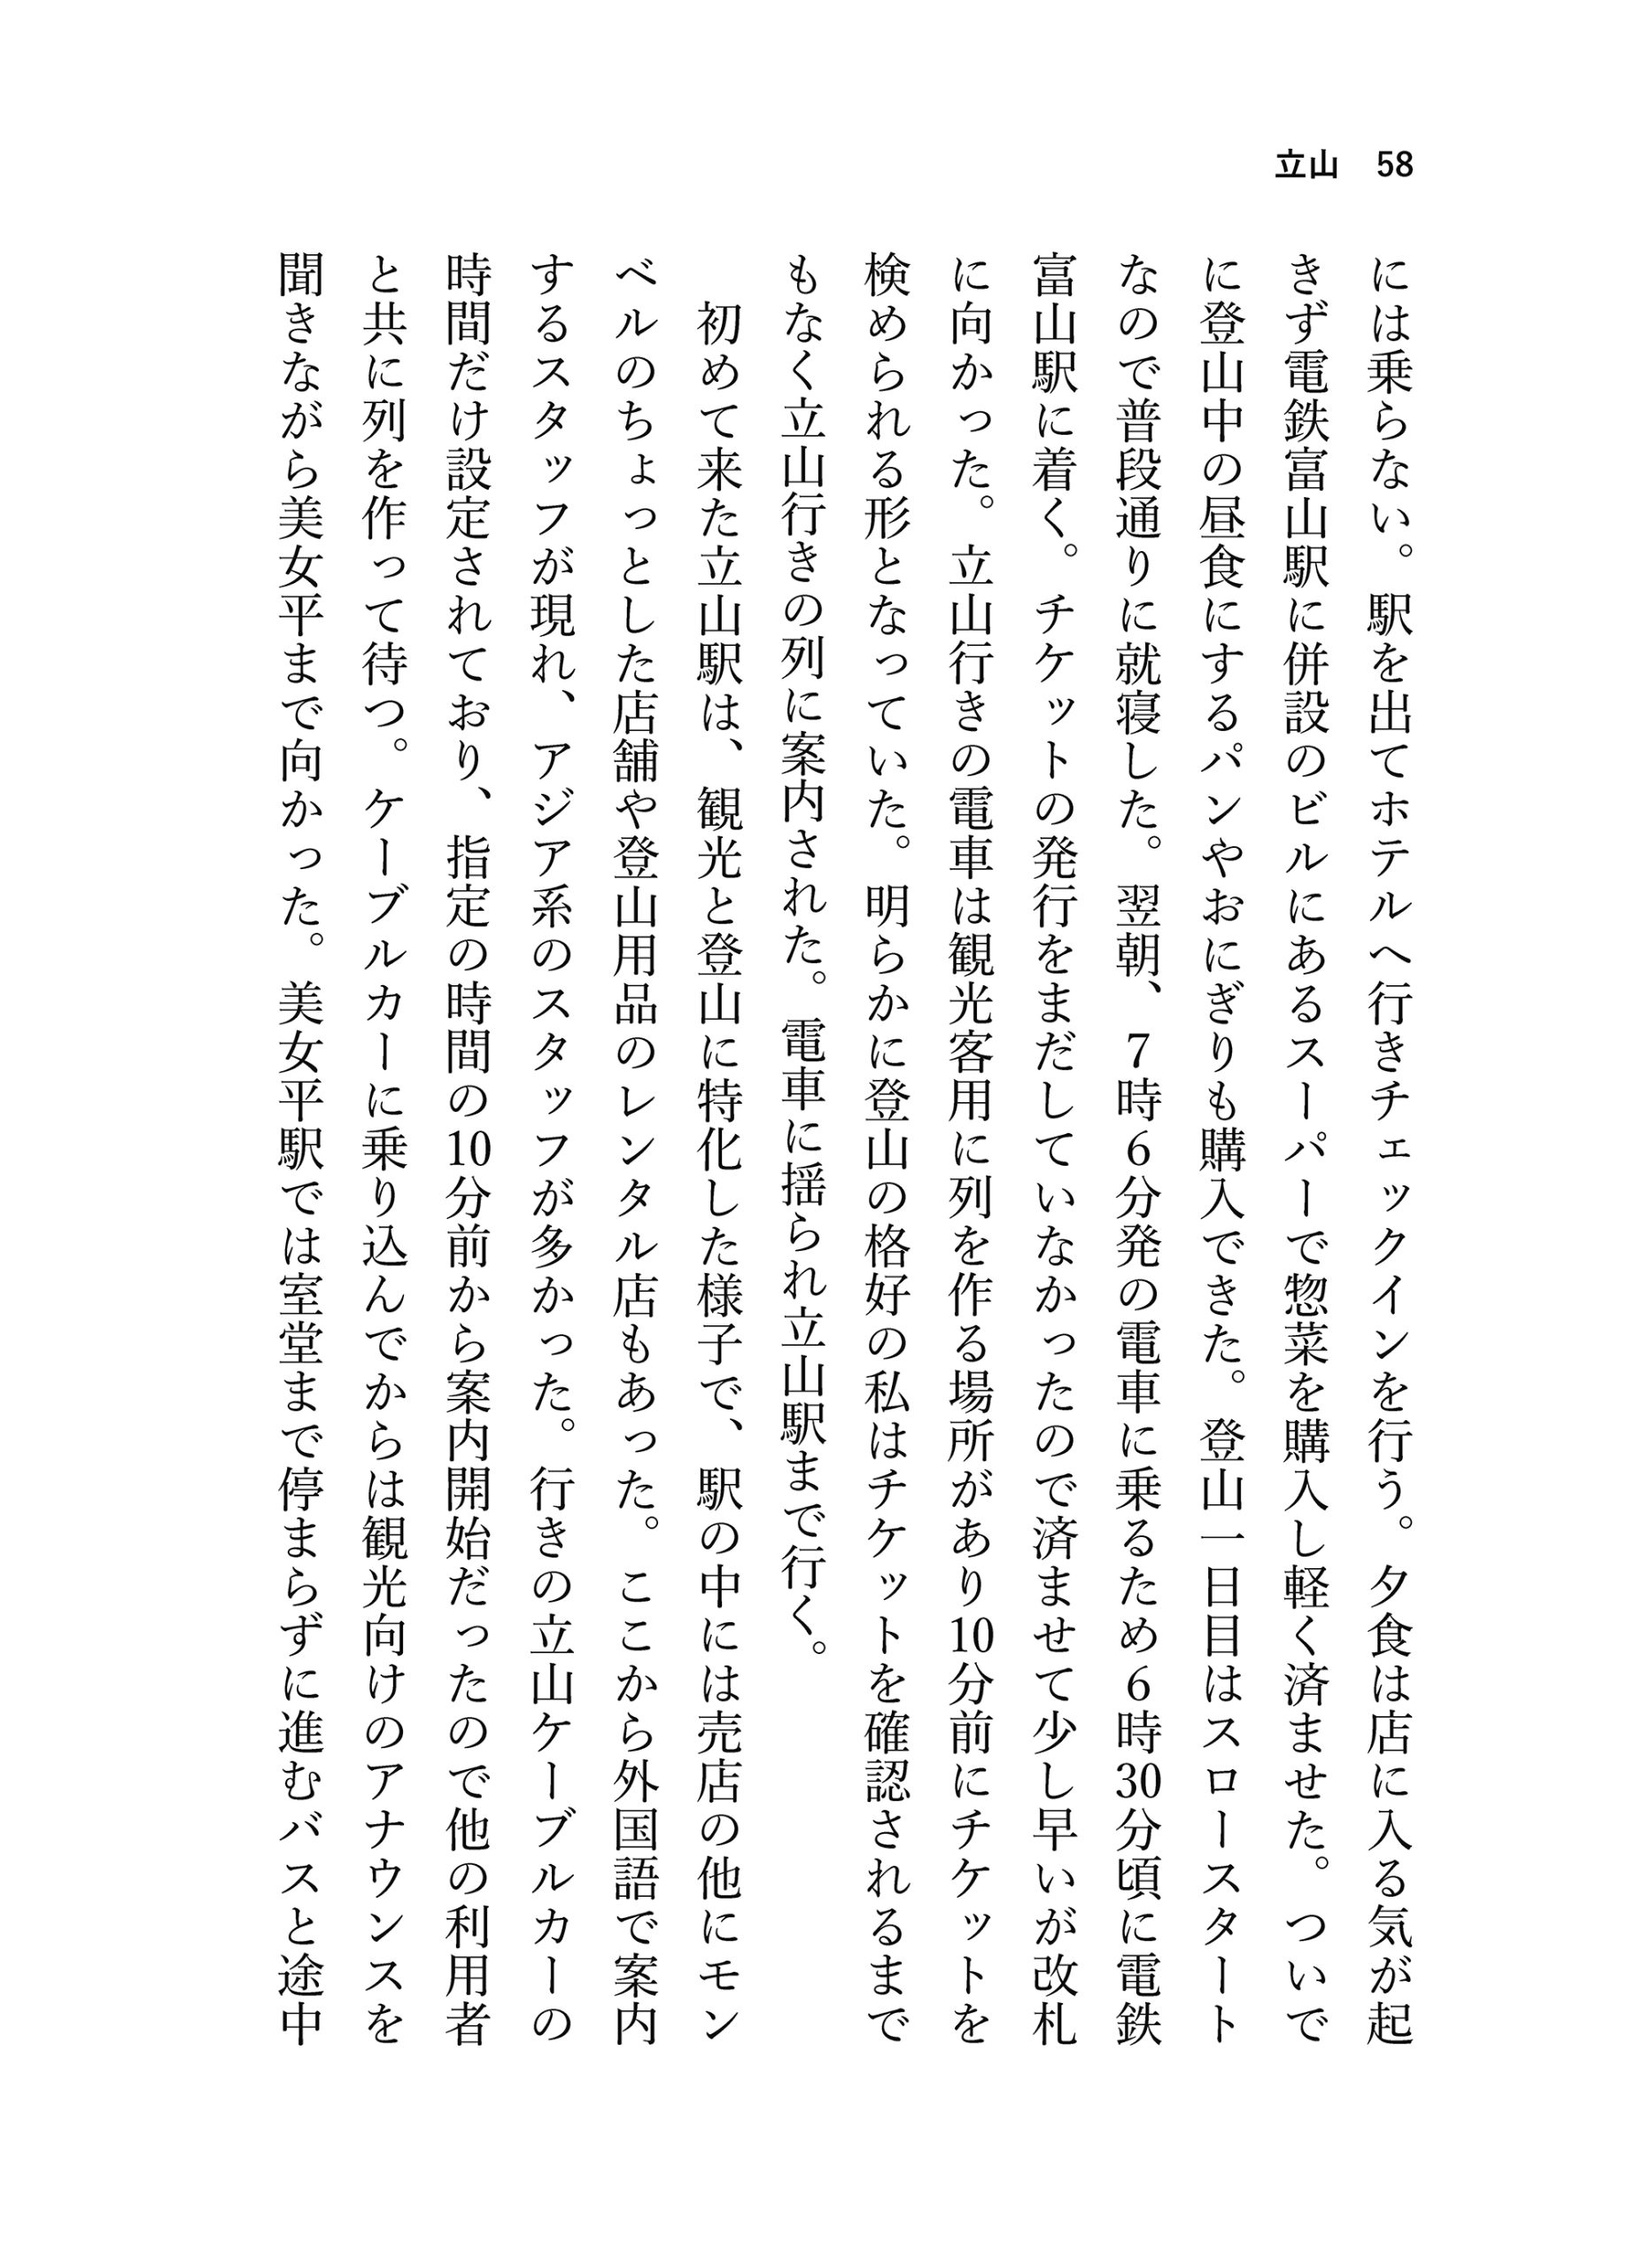 立山　58
には乗らない。駅を出てホテルへ行きチェックインを行う。夕食は店に入る気が起
きず電鉄富山駅に併設のビルにあるスーパーで惣菜を購入し軽く済ませた。ついで
に登山中の昼食にするパンやおにぎりも購入できた。登山一日目はスロースタート
なので普段通りに就寝した。翌朝、7時6分発の電車に乗るため6時30分頃に電鉄
富山駅に着く。チケットの発行をまだしていなかったので済ませて少し早いが改札
に向かった。立山行きの電車は観光客用に列を作る場所があり10分前にチケットを
検められる形となっていた。明らかに登山の格好の私はチケットを確認されるまで
もなく立山行きの列に案内された。電車に揺られ立山駅まで行く。
　初めて来た立山駅は、観光と登山に特化した様子で、駅の中には売店の他にモン
ベルのちょっとした店舗や登山用品のレンタル店もあった。ここから外国語で案内
するスタッフが現れ、アジア系のスタッフが多かった。行きの立山ケーブルカーの
時間だけ設定されており、指定の時間の10分前から案内開始だったので他の利用者
と共に列を作って待つ。ケーブルカーに乗り込んでからは観光向けのアナウンスを
聞きながら美女平まで向かった。美女平駅では室堂まで停まらずに進むバスと途中